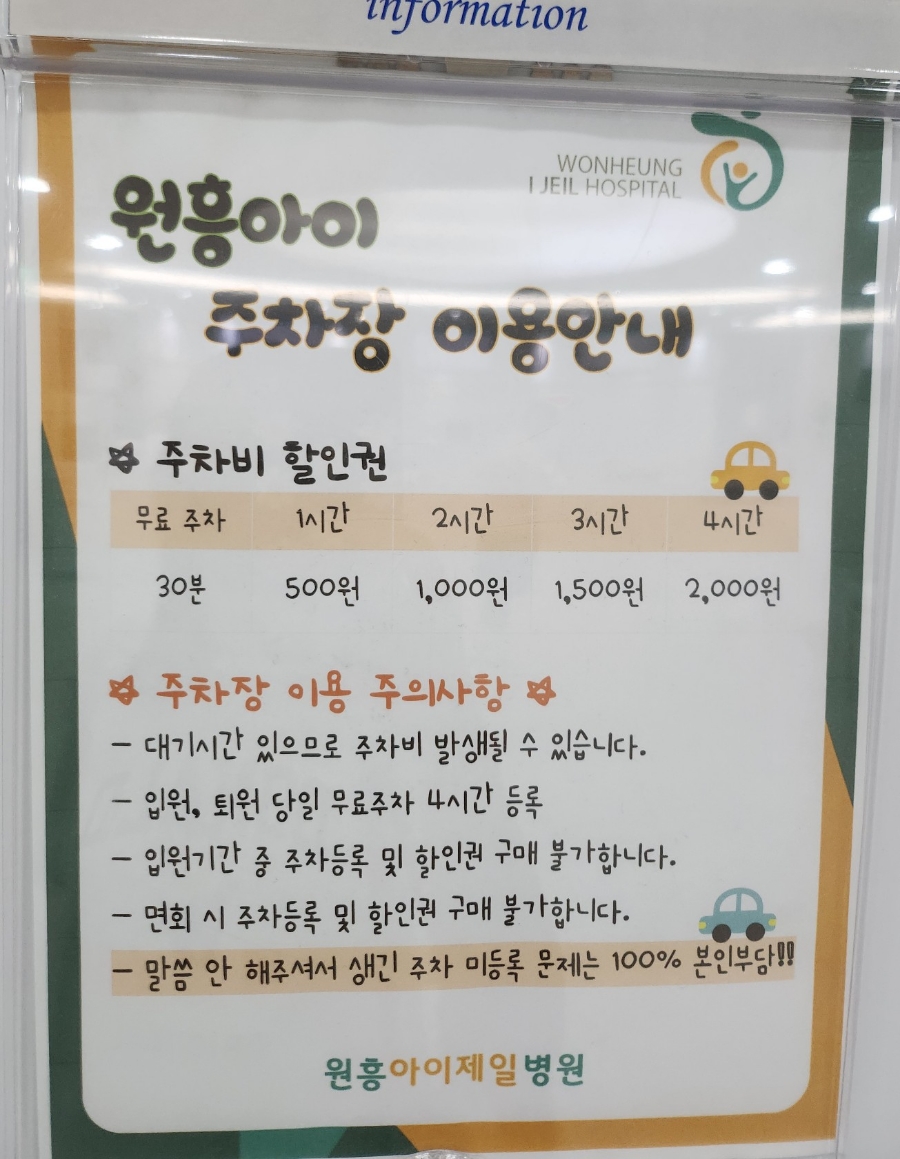 information
WONHEUNG
I JEIL HOSPITAL
원흥아이
주차장 이용안내
주차비 할인권
무료 주차 1시간 2시간 3시간 4시간
30분 500원 1,000원 1,500원 2,000원
주차장 이용 주의사항
- 대기시간 있으므로 주차비 발생될 수 있습니다.
- 입원, 퇴원 당일 무료주차 4시간 등록
- 입원기간 중 주차등록 및 할인권 구매 불가합니다.
- 면회 시 주차등록 및 할인권 구매 불가합니다.
- 말씀 안 해주셔서 생긴 주차 미등록 문제는 100% 본인부담!!
원흥아이제일병원